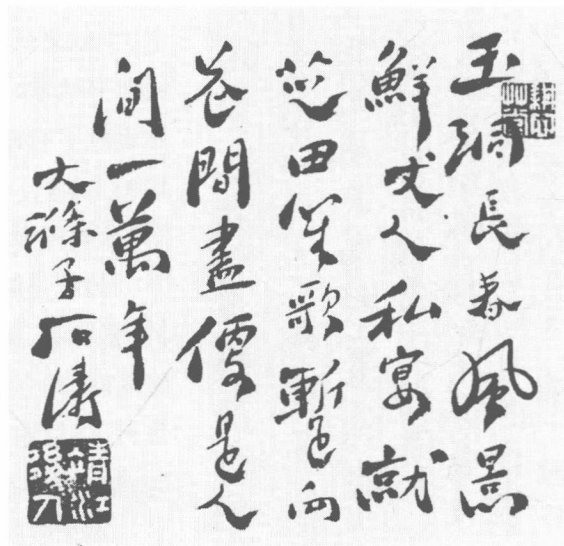 玉洞長春風景
鮮丈人私宴就
芝田笙歌暫向
花間盡便是人
間一萬年
大滌子石濤
靖江後人